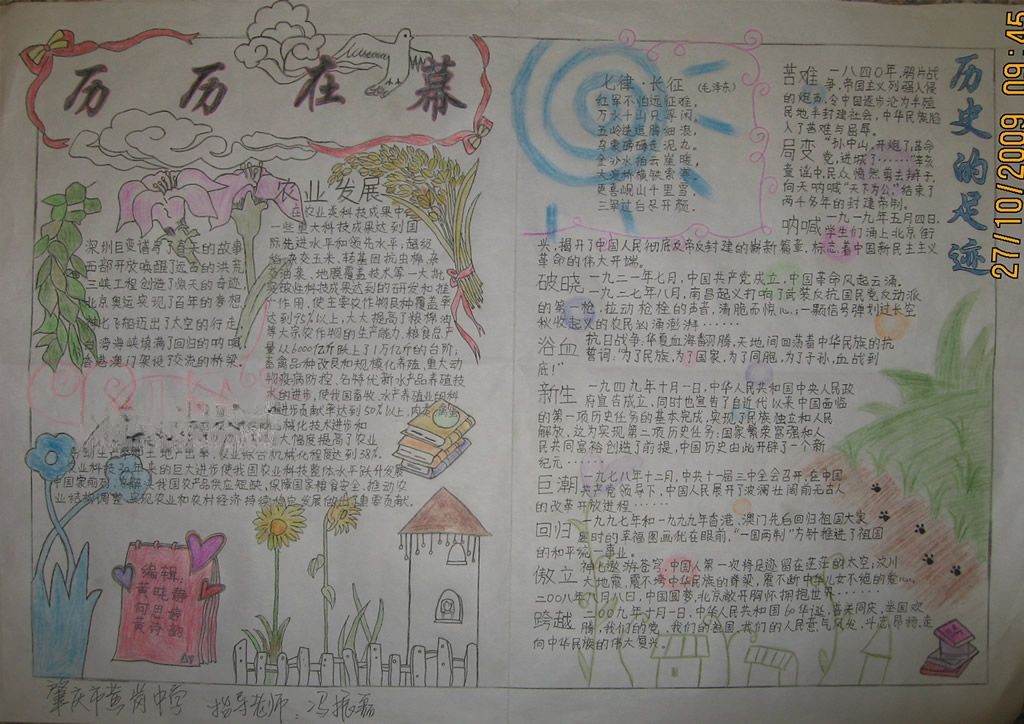 历历在幕
农业发展
在农业类科技成果中
一些重大科技成果达到国
际先进水平和领先水平，超级
杂交玉米、转基因抗虫棉、杂
交油菜、地膜覆盖技术等一大批
突破性科技成果达到的研发和推
广作用，使主要农作物良种覆盖率
达到95%以上，大大提高了粮棉油
等大宗农作物的生产能力，粮食总产
量从6000亿斤跃上了1万亿斤的台阶；
畜禽品种改良和规模化养殖、重大动
物疫病防控、名特优新水产品养殖技
术的进步，使我国畜牧、水产养殖业的科
技进步贡献率达到50%以上
械化技术进步和
大幅度提高了农业
生产率和土地产出率，农业综合机械化程度达到38%。
农业科技30年来的巨大进步使我国农业科技整体水平跃升发展
中国家前列，保障我国农产品供应短缺，保障国家粮食安全，推动农
业结构调整，实现农业和农村经济持续稳定发展做出重要贡献。
深圳巨变谱写了春天的故事
西部开放唤醒了远古的洪荒
三峡工程创造了惊天的奇迹，
北京奥运实现了百年的梦想，
神七飞船迈出了太空的行走，
台湾海峡填满了回归的呐喊，
香港澳门架设了交流的桥梁。
编辑：
黄晓静
何思婷
黄诗韵
肇庆市黄岗中学 指导老师：冯振磊
七律·长征（毛泽东）
红军不怕远征难，
万水千山只等闲。
五岭逶迤腾细浪，
乌蒙磅礴走泥丸。
金沙水拍云崖暖，
大渡桥横铁索寒。
更喜岷山千里雪，
三军过后尽开颜。
历史的足迹
苦难 一八四〇年，鸦片战
争，帝国主义列强入侵
的炮声，令中国逐步沦为半殖
民地半封建社会，中华民族陷
入了苦难与屈辱。
局变 "孙中山，开炮了，革命
党，进城了……"
童谣中，民众愤然剪去辫子，
向天呐喊"天下为公"，结束了
两千多年的封建帝制。
呐喊 一九一九年五月四日，
学生们涌上北京街
兴，揭开了中国人民彻底反帝反封建的崭新篇章，标志着中国新民主主义
革命的伟大开端。
破晓 一九二一年七月，中国共产党成立，中国革命风起云涌。
一九二七年八月，南昌起义打响了武装反抗国民党反动派
的第一枪，拉动枪栓的声音，清脆而惊心；一颗信号弹划过长空
秋收起义的农民汹涌澎湃……
浴血 抗日战争，华夏血海翻腾，天地间回荡着中华民族的抗
誓词，"为了民族，为了国家，为了同胞，为了子孙，血战到
底！"
新生 一九四九年十月一日，中华人民共和国中央人民政
府宣告成立，同时也宣告了自近代以来中国面临
的第一项历史任务的基本完成，实现了民族独立和人民
解放，这为实现第二项历史任务：国家繁荣富强和人
民共同富裕创造了前提，中国历史由此开辟了一个新
纪元……
巨潮 一九七八年十二月，中共十一届三中全会召开，在中国
共产党领导下，中国人民展开了波澜壮阔前无古人
的改革开放进程……
回归 一九九七年和一九九九年香港、澳门先后回归祖国大家
庭时的幸福图画犹在眼前，"一国两制"方针推进了祖国
的和平统一事业。
傲立 神七遨游苍穹，中国人第一次将足迹留在茫茫的太空；汶川
大地震，震不垮中华民族的脊梁，震不断中华儿女不绝的爱心。
二〇〇八年八月八日，中国圆梦，北京敞开胸怀拥抱世界……
跨越 二〇〇九年十月一日，中华人民共和国60华诞，普天同庆，举国欢
腾，我们的党，我们的祖国，我们的人民意气风发，斗志昂扬，走
向中华民族的伟大复兴。
27/10/2009 09:45